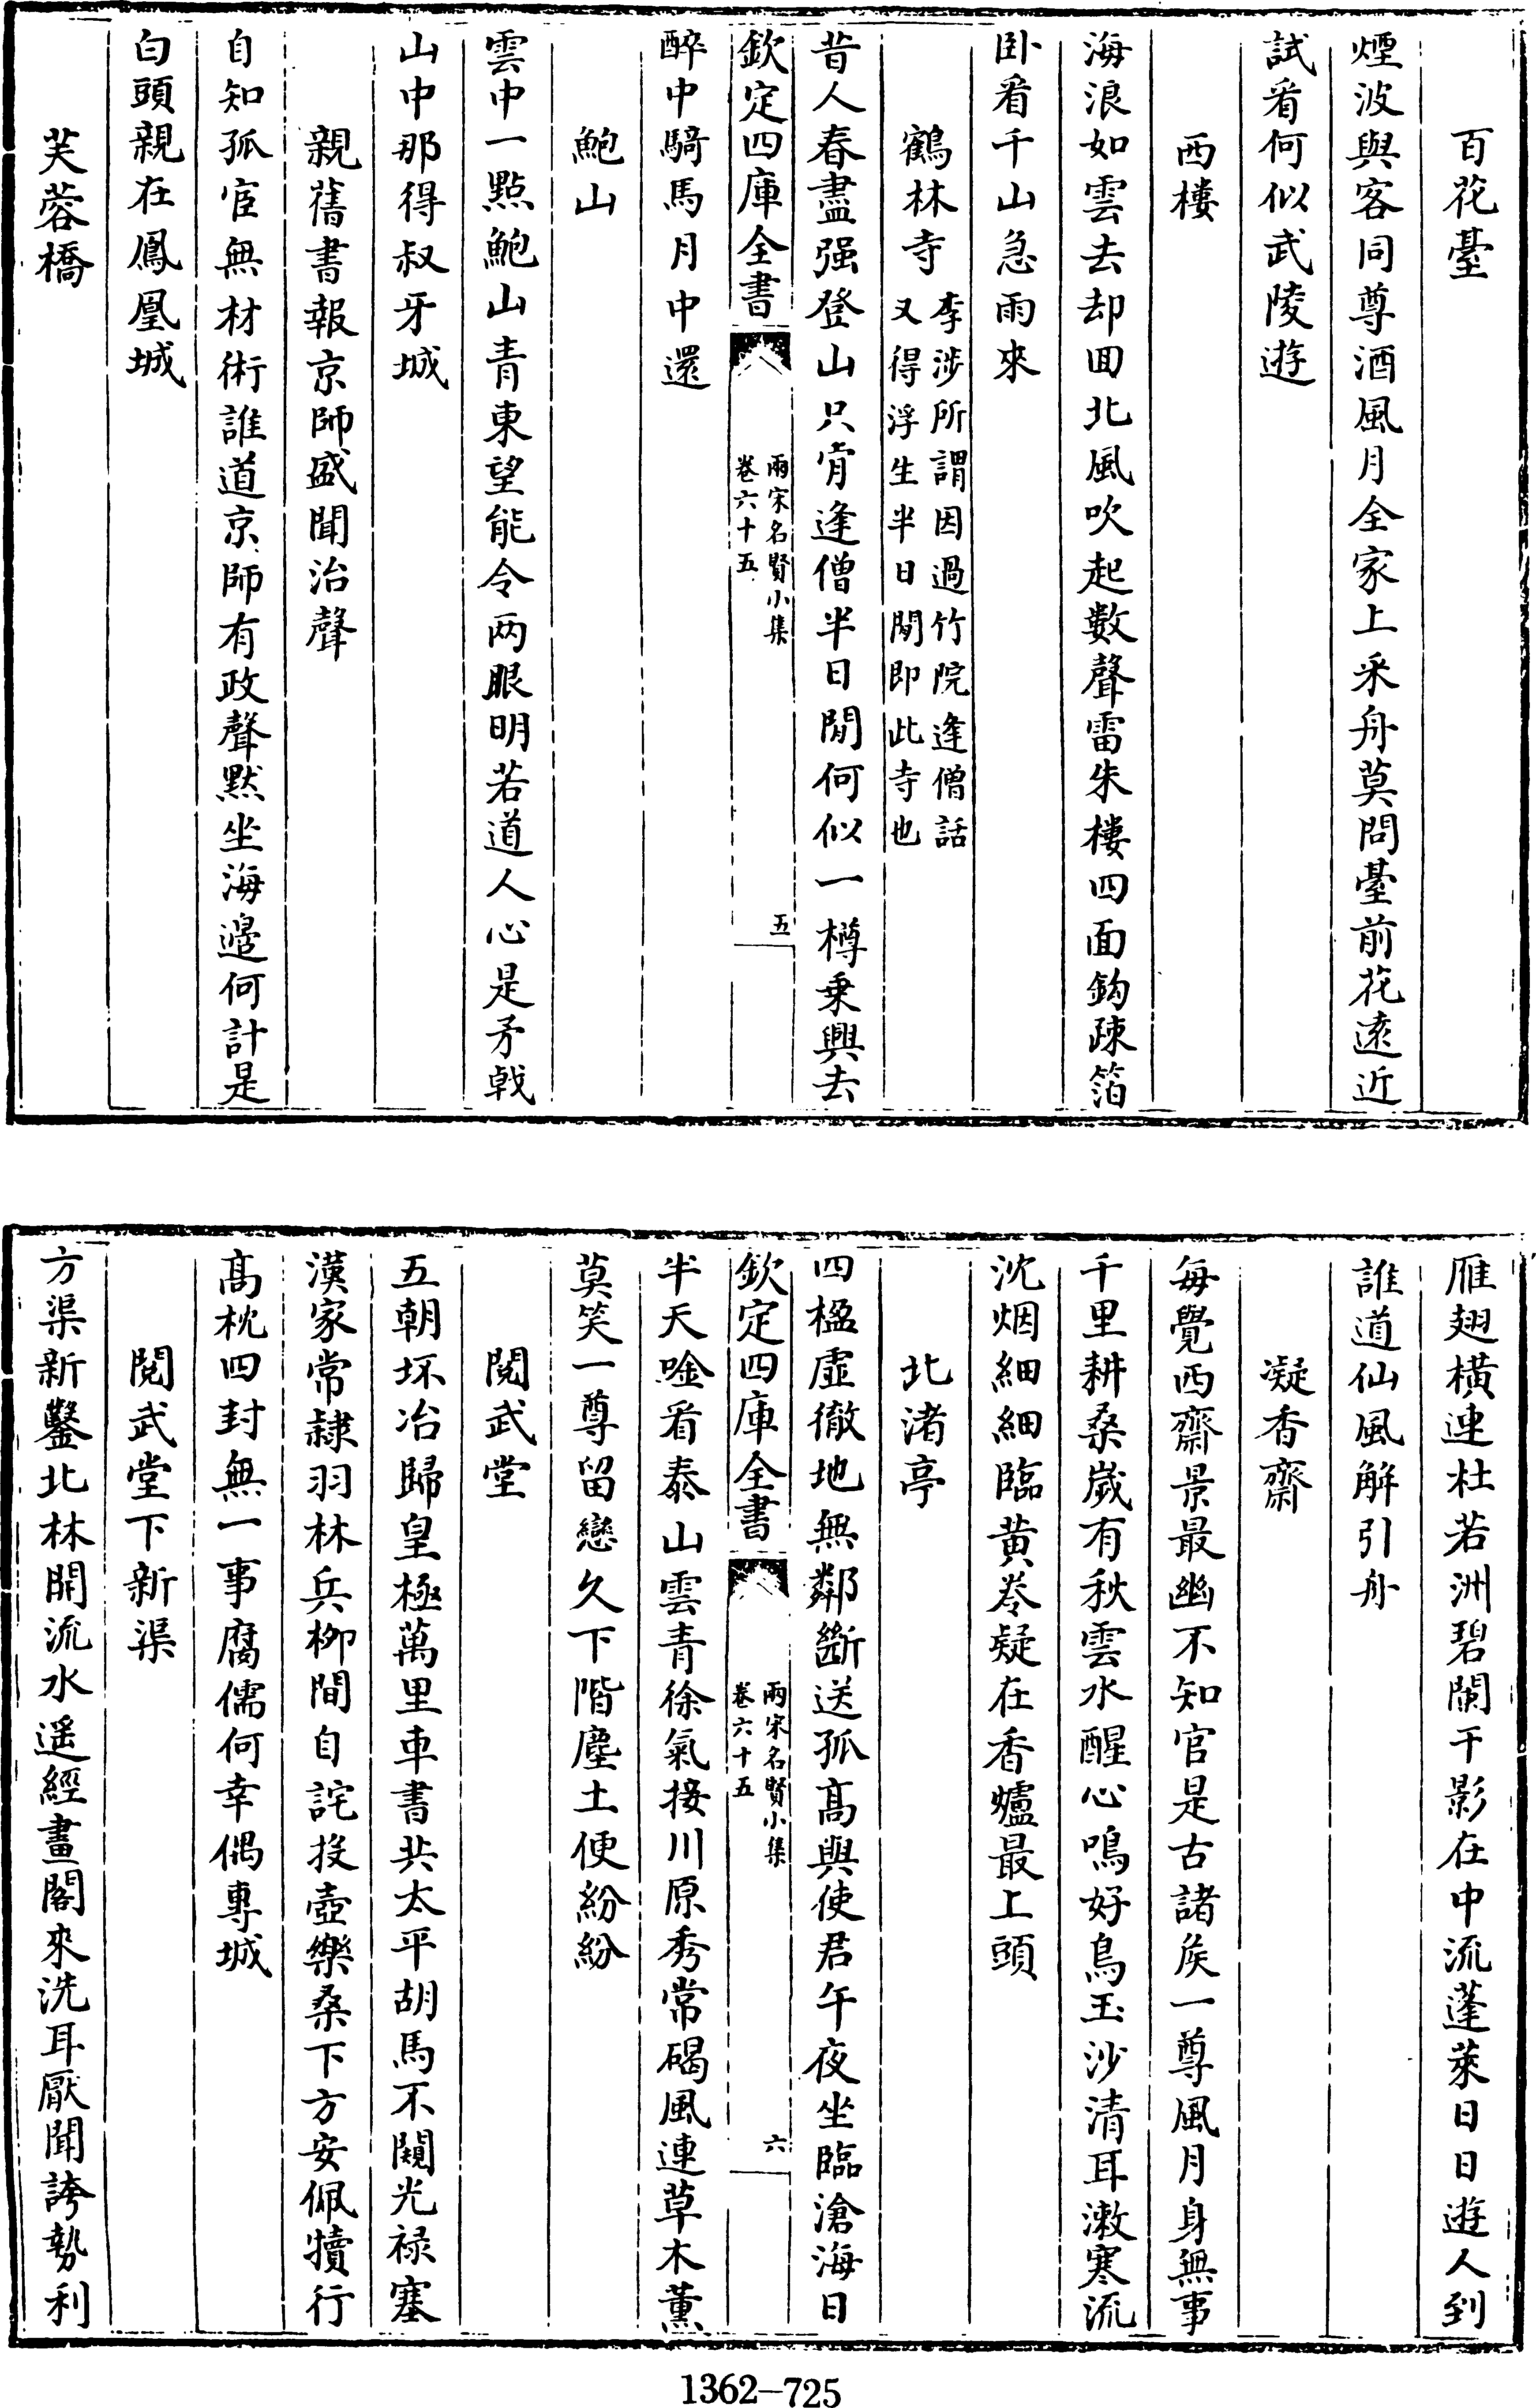 百花臺
煙波與客同尊酒風月全家上采舟莫問臺前花逺近
試㸔何似武陵遊
西樓
海浪如雲去却回北風吹起數聲雷朱樓四面鈎疎箔
卧㸔千山急雨來
鶴林寺
李渉所謂因過竹院逢僧話
又得浮生半日閒即此寺也
昔人春盡强登山只肯逢僧半日閒何似一樽乗興去
欽定四庫全書
兩宋名賢小集
卷六十五
五
醉中騎馬月中還
鮑山
雲中一點鮑山青東望能令两眼明若道人心是矛㦸
山中那得叔牙城
親舊書報京師盛聞治聲
自知孤宦無材術誰道京師有政聲黙坐海邉何計是
白頭親在鳳凰城
芙蓉橋
雁翅橫連杜若洲碧闌干影在中流蓬萊日日遊人到
誰道仙風解引舟
凝香齋
每覺西齋景最幽不知官是古諸侯一尊風月身無事
千里耕桑歲有秋雲水醒心鳴好鳥玉沙清耳漱寒流
沈烟細細臨黄卷疑在香爐最上頭
北渚亭
四楹虛徹地無鄰斷送孤髙與使君午夜坐臨滄海日
欽定四庫全書
兩宋名賢小集
卷六十五
六
半天唫㸔泰山雲青徐氣接川原秀常碣風連草木薰
莫笑一尊留戀久下階塵土便紛紛
閱武堂
五朝坏冶歸皇極萬里車書共太平胡馬不闚光禄塞
漢家常隸羽林兵柳間自詫投壺樂桑下方安佩犢行
髙枕四封無一事腐儒何幸偶專城
閱武堂下新渠
方渠新鑿北林開流水遥經畫閣來洗耳厭聞誇勢利
1362-725